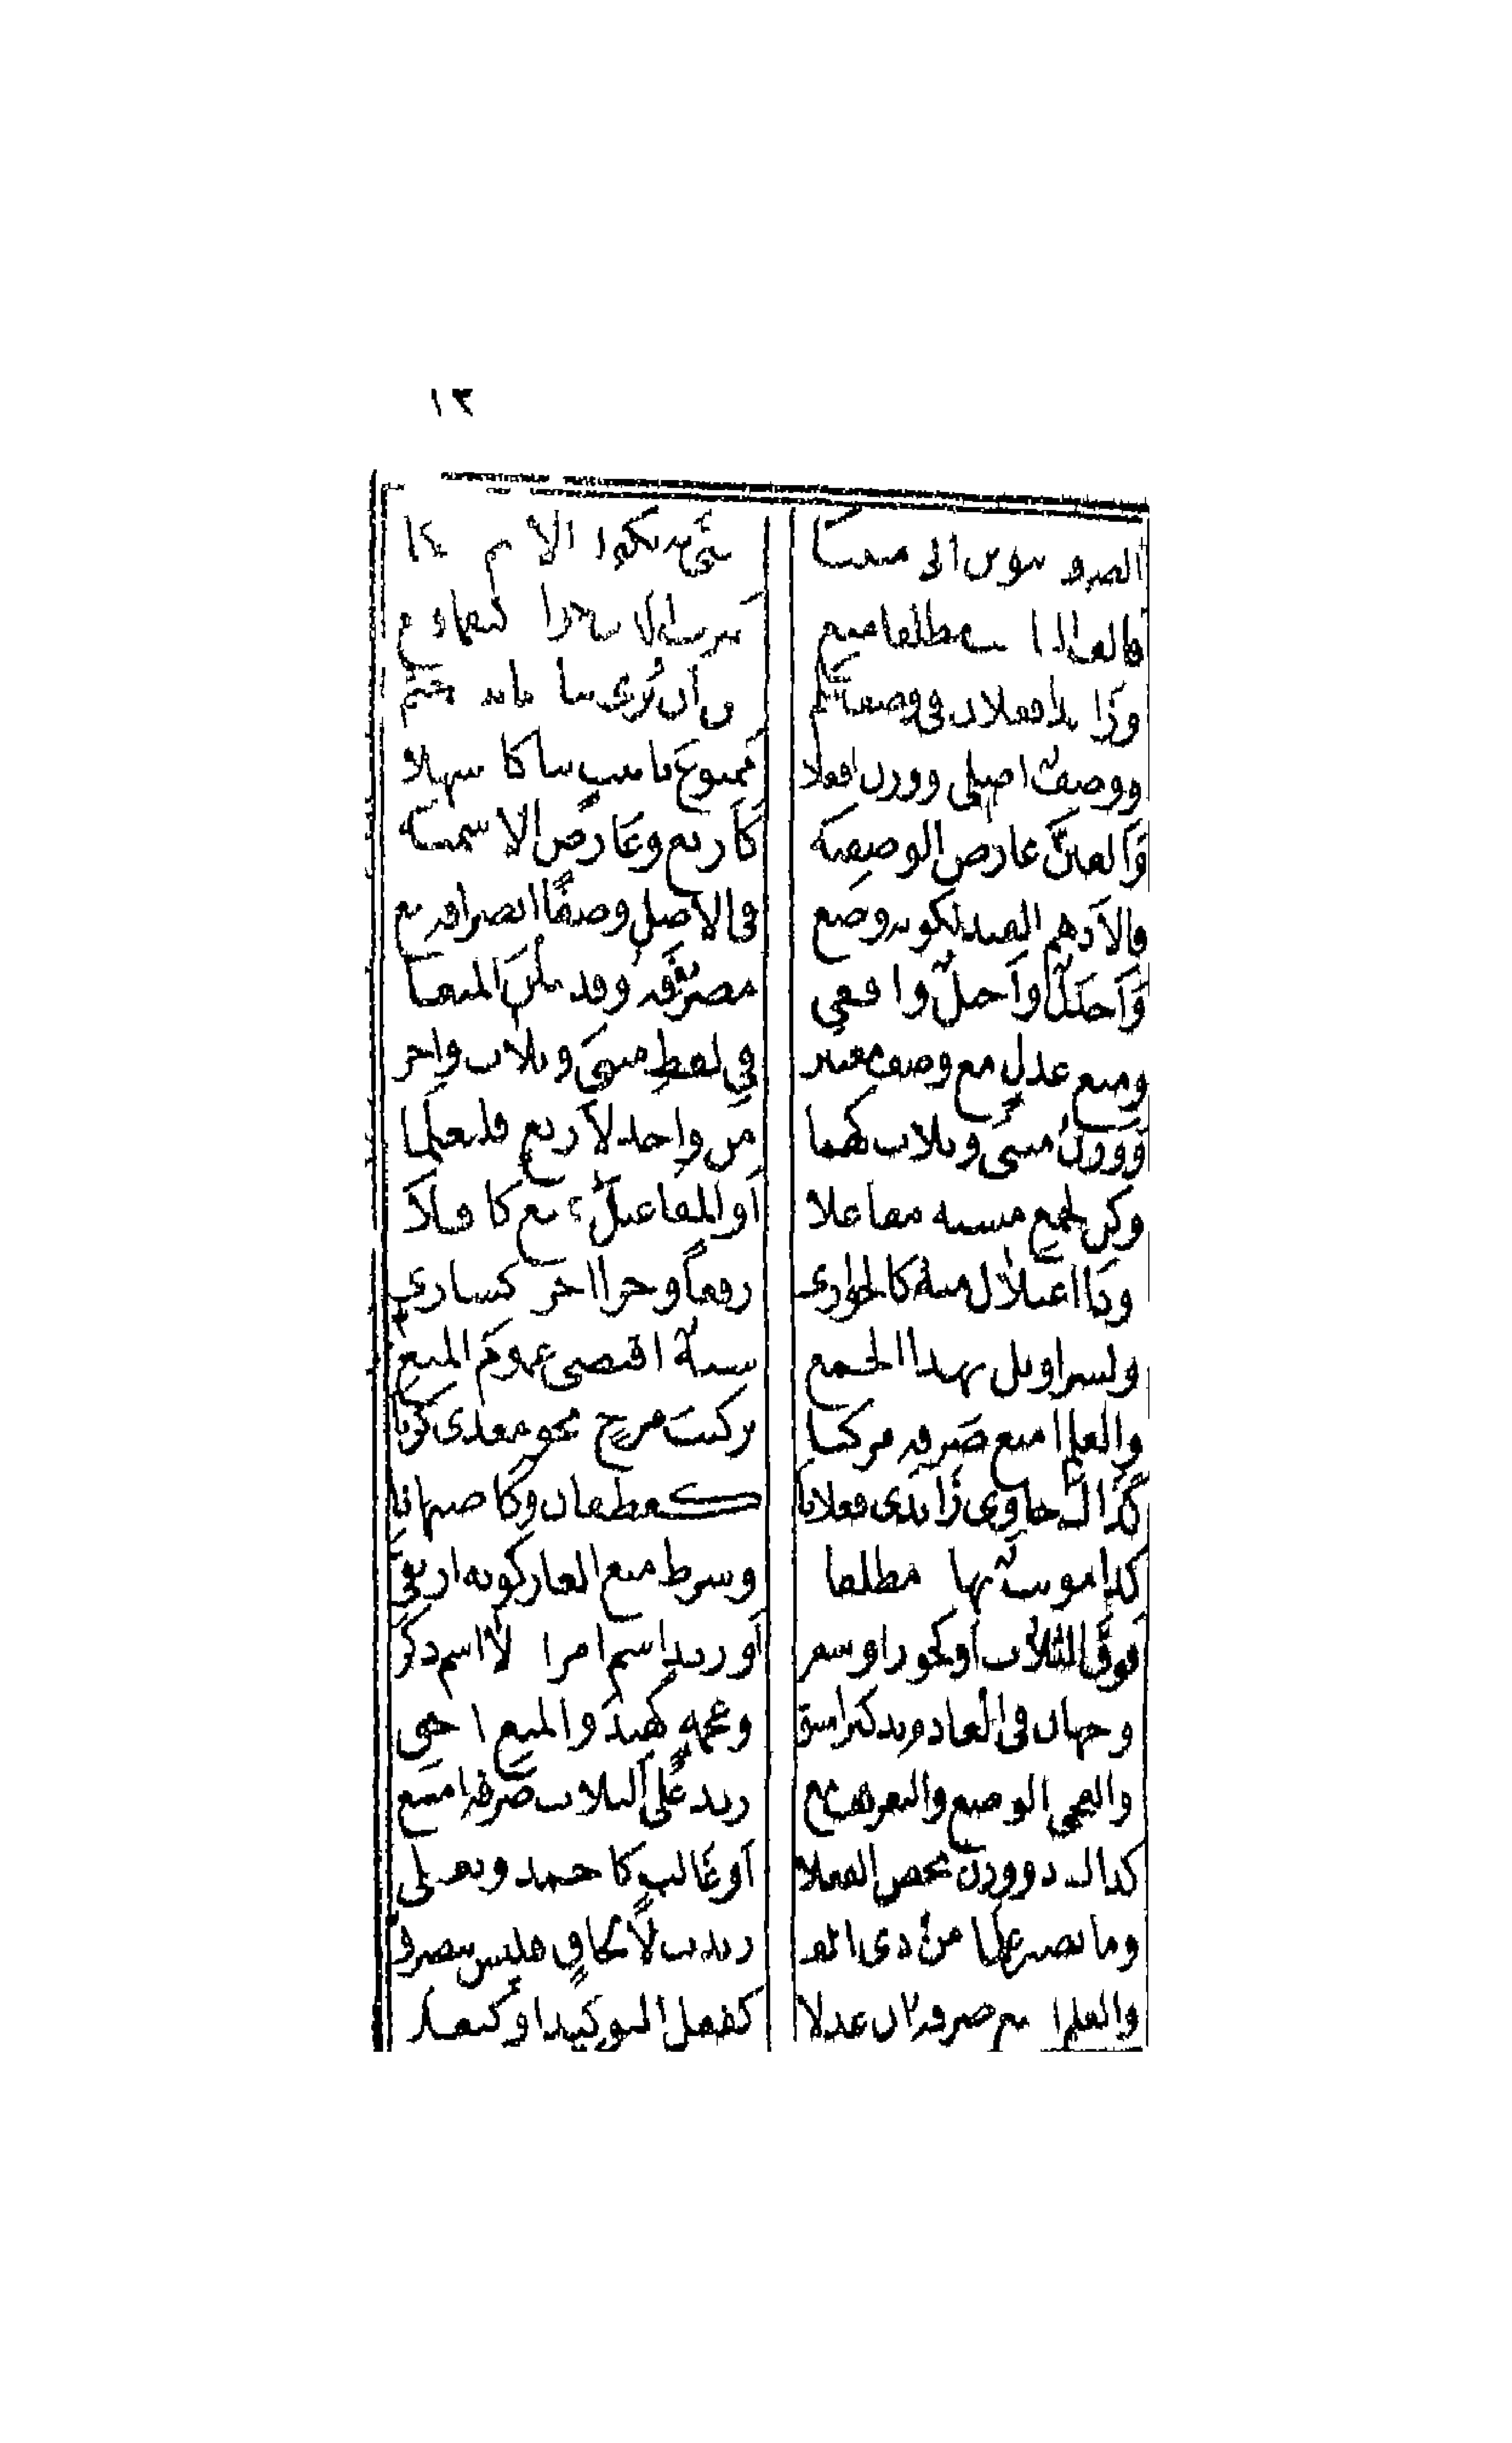 ١٣
الصرف تنوين اتى مبينا معنى به يكون الاسم امكنا
فالف التانيث مطلقا منع صرف الذى حواه كيفما وقع
وزائدا فعلان فى وصف سلم من ان يرى بتاء تانيث ختم
ووصف اصلى ووزن افعلا ممنوع تانيث بتا كاشهلا
والغين عارض الوصفيه كاربع وعارض الاسميه
فالادهم القيد لكونه وضع فى الاصل وصفا انصرافه منع
واجدل واخيل وافعى مصروفة وقد ينلن المنعا
ومنع عدل مع وصف معتبر فى لفظ مثنى وثلاث واخر
ووزن مثنى وثلاث كهما من واحد لاربع فليعلما
وكن لجمع مشبه مفاعلا او المفاعيل بمنع كافلا
وذا اعتلال منه كالجوارى رفعا وجرا اجر كسارى
ولسراويل بهذا الجمع شبه اقتضى عموم المنع
والعلم امنع صرفه مركبا تركيب مزج نحو معدى كربا
كذاك حاوى زائدى فعلانا كغطفان وكاصبهانا
كذا مونث بها مطلقا وشرط منع العار كونه ارتقى
فوق الثلاث او كجور او سقر او زيد اسم امراة لا اسم ذكر
وجهان فى العادم تذكيرا سبق وعجمة كهند والمنع احق
والعجمى الوضع والتعريف مع زيد على الثلاث صرفه امتنع
كذاك ذو وزن يخص الفعلا او غالب كاحمد ويعلى
وما يصير علما من ذى الف زيدت لالحاق فليس ينصرف
والعلم امنع صرفه ان عدلا كفعل التوكيد او كثعلا